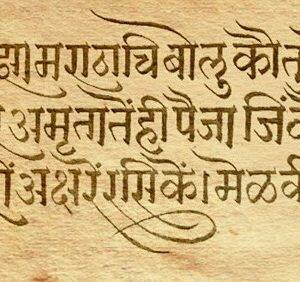 मराठाचि बोलु कौ
अमृतातेंही पैजा जिं
अक्षरें रसिकें। मेळ